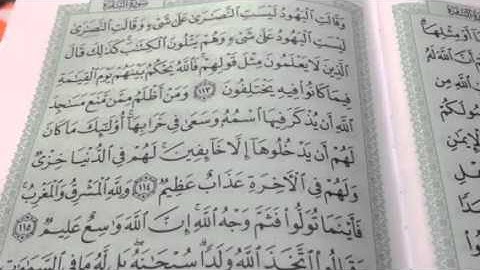 سورة البقرة
وَقَالَتِ ٱلْيَهُودُ لَيْسَتِ ٱلنَّصَٰرَىٰ عَلَىٰ شَىْءٍ وَقَالَتِ ٱلنَّصَٰرَىٰ
لَيْسَتِ ٱلْيَهُودُ عَلَىٰ شَىْءٍ وَهُمْ يَتْلُونَ ٱلْكِتَٰبَ كَذَٰلِكَ قَالَ
ٱلَّذِينَ لَا يَعْلَمُونَ مِثْلَ قَوْلِهِمْ فَٱللَّهُ يَحْكُمُ بَيْنَهُمْ يَوْمَ ٱلْقِيَٰمَةِ
فِيمَا كَانُوا۟ فِيهِ يَخْتَلِفُونَ ١١٣ وَمَنْ أَظْلَمُ مِمَّن مَّنَعَ مَسَٰجِدَ
ٱللَّهِ أَن يُذْكَرَ فِيهَا ٱسْمُهُۥ وَسَعَىٰ فِى خَرَابِهَآ أُو۟لَٰٓئِكَ مَا كَانَ
لَهُمْ أَن يَدْخُلُوهَآ إِلَّا خَآئِفِينَ لَهُمْ فِى ٱلدُّنْيَا خِزْىٌ
وَلَهُمْ فِى ٱلْءَاخِرَةِ عَذَابٌ عَظِيمٌ ١١٤ وَلِلَّهِ ٱلْمَشْرِقُ وَٱلْمَغْرِبُ
فَأَيْنَمَا تُوَلُّوا۟ فَثَمَّ وَجْهُ ٱللَّهِ إِنَّ ٱللَّهَ وَٰسِعٌ عَلِيمٌ ١١٥
وَقَالُوا۟ ٱتَّخَذَ ٱللَّهُ وَلَدًا سُبْحَٰنَهُۥ بَل لَّهُۥ مَا فِى ٱلسَّمَٰوَٰتِ